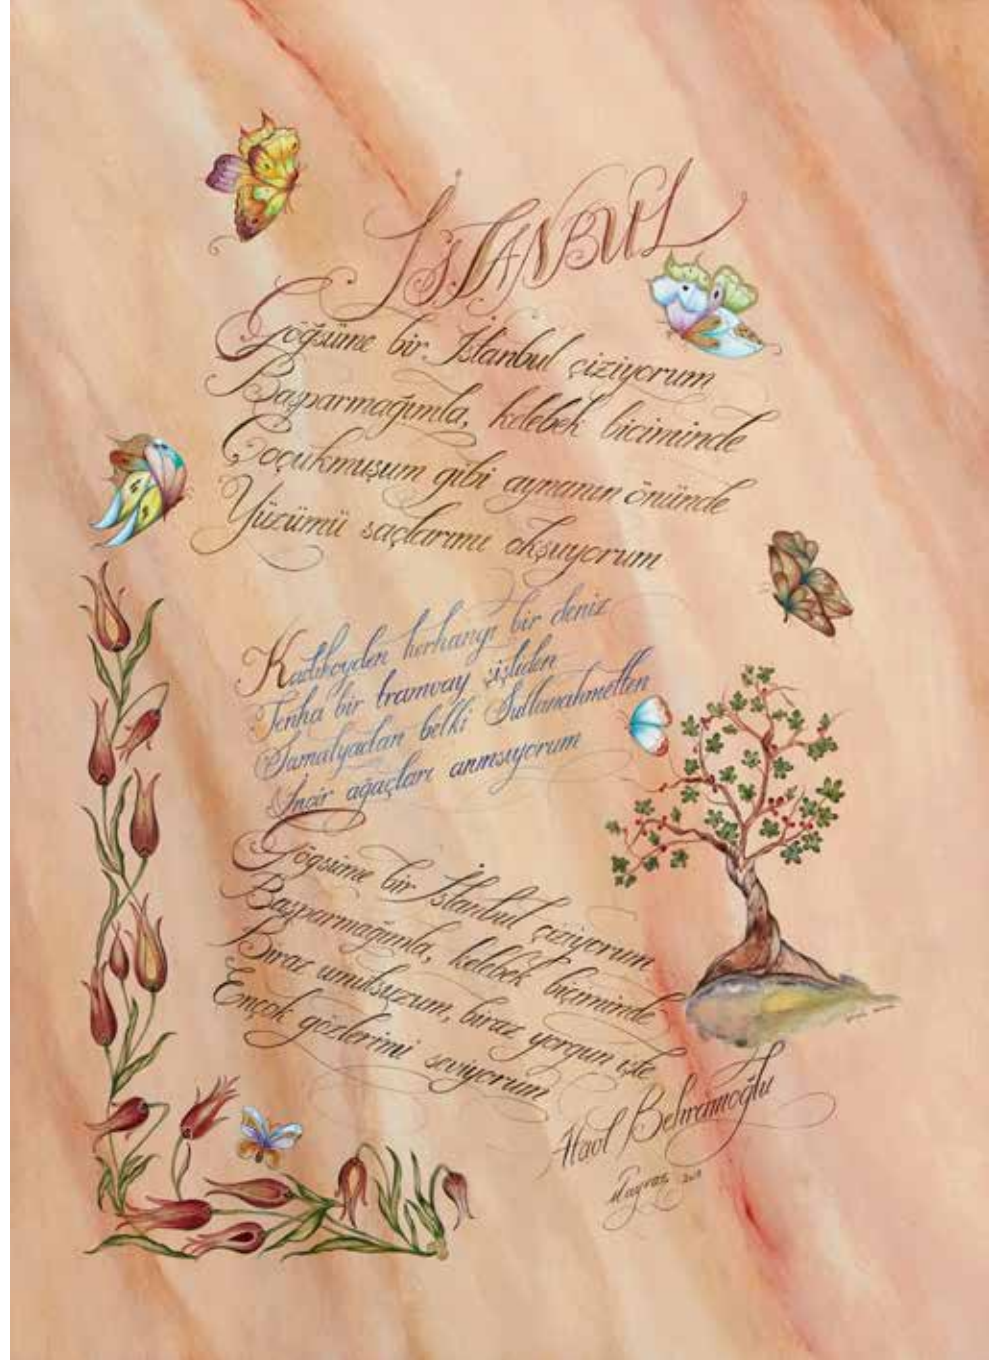 İSTANBUL
Göğsüme bir İstanbul çiziyorum
Başparmağımla, kelebek biçiminde
Çocukmuşum gibi aynanın önünde
Yüzümü saçlarımı okşuyorum
Kadıköyden herhangi bir deniz
Tenha bir tramvay şişliden
Samatyadan belki Sultanahmetten
İncir ağaçları anımsıyorum
Göğsüme bir İstanbul çiziyorum
Başparmağımla, kelebek biçiminde
Biraz umutsuzum, biraz yorgun işte
Ençok gözlerimi seviyorum
Ataol Behramoğlu